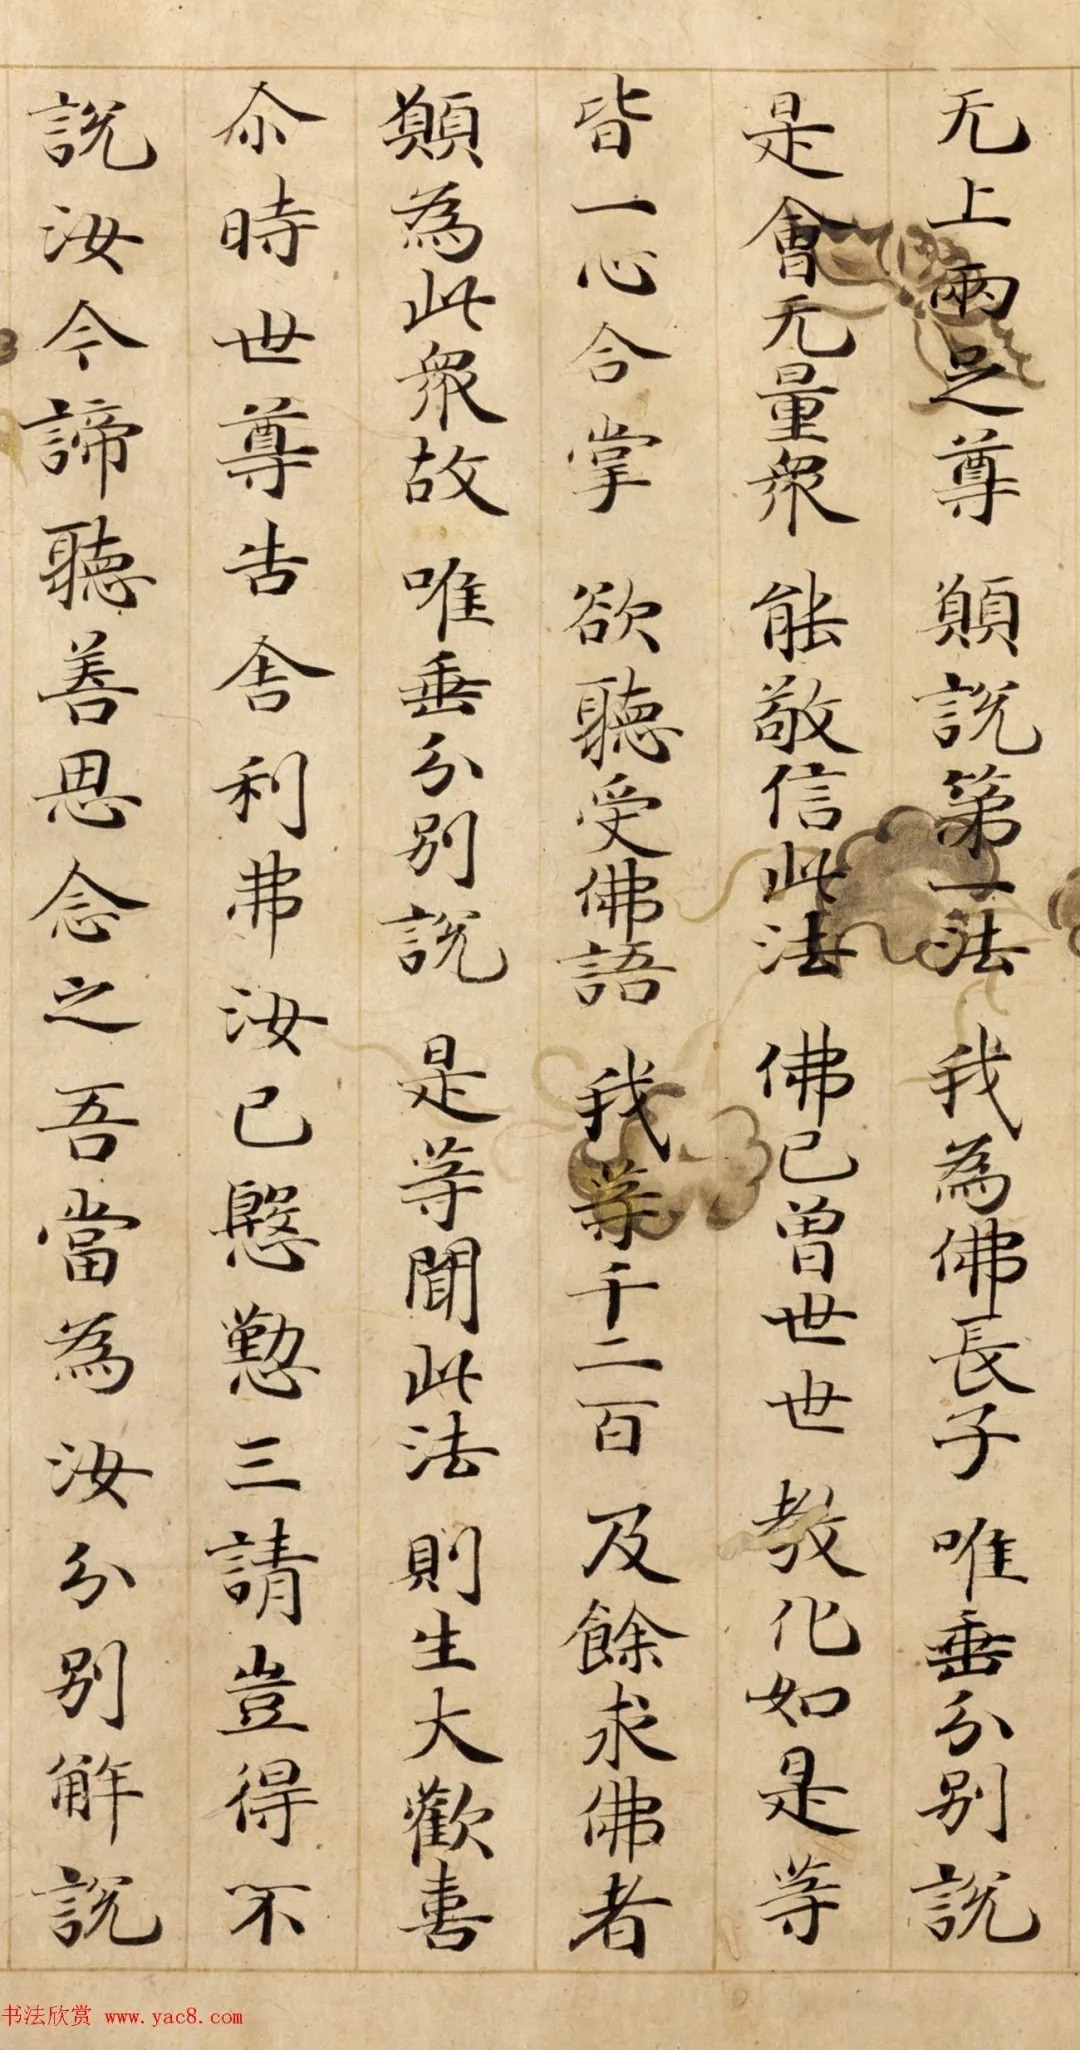 无上兩足尊 願說第一法 我為佛長子 唯垂分別說
是會无量衆 能敬信此法 佛已曾世世 教化如是等
皆一心合掌 欲聽受佛語 我等千二百 及餘求佛者
願為此衆故 唯垂分別說 是等聞此法 則生大歡喜
尒時世尊告舍利弗汝已慇懃三請豈得不
說汝今諦聽善思念之吾當為汝分別解說
书法欣赏 www.yac8.com